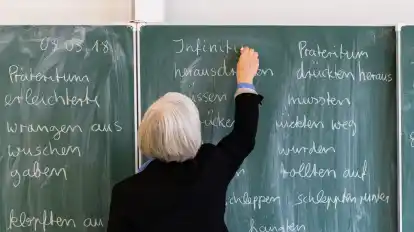 09.03.18
Präteritum
erleichterte
wrangen aus
wuschen
gaben
klopften au
Infinitiv
herausdrücken
issen
Präteritum
drückten heraus
mussten
rückten weg
wurden
rollten auf
schleppen schleppten runter
hängten